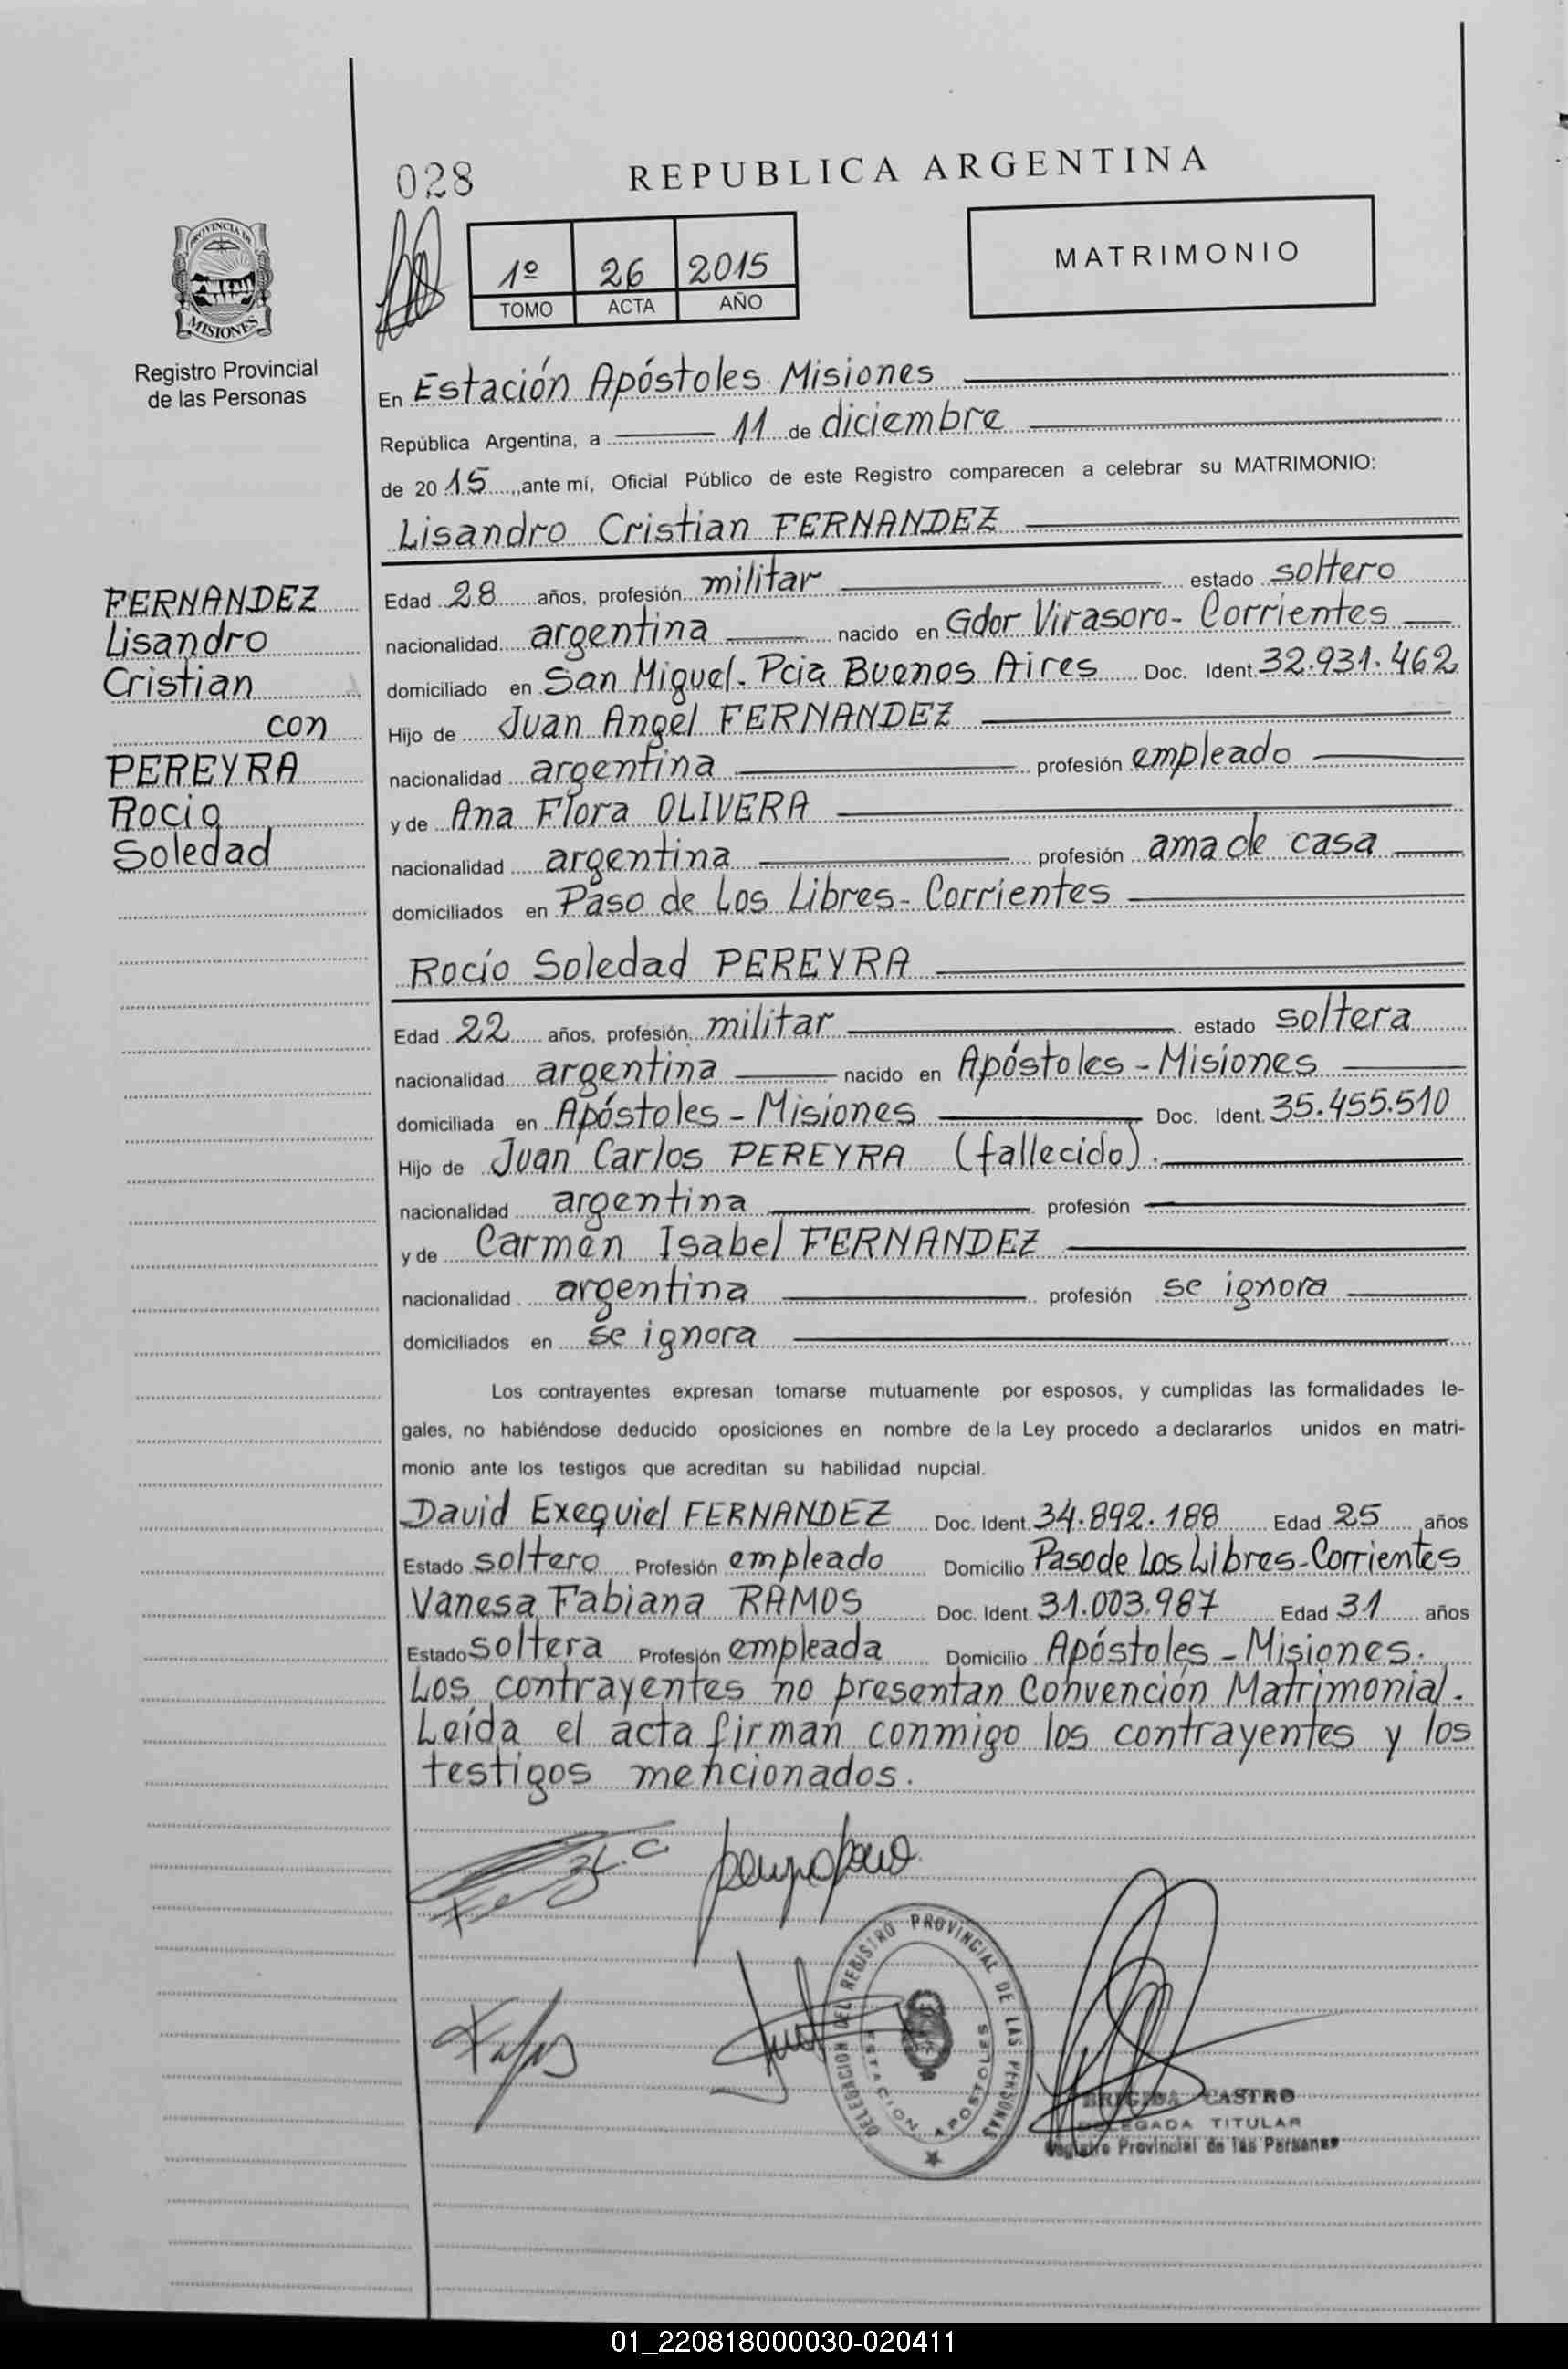 028
REPUBLICA ARGENTINA
PROVINCIA DE
MISIONES
Registro Provincial
de las Personas
1º 26 2015
TOMO ACTA AÑO
MATRIMONIO
En Estación Apóstoles Misiones
República Argentina, a 11 de diciembre
de 2015, ante mí, Oficial Público de este Registro comparecen a celebrar su MATRIMONIO:
Lisandro Cristian FERNANDEZ
FERNANDEZ
Lisandro
Cristian
con
PEREYRA
Rocio
Soledad
Edad 28 años, profesión militar estado soltero
nacionalidad argentina nacido en Gdor Virasoro - Corrientes
domiciliado en San Miguel - Pcia Buenos Aires Doc. Ident. 32.931.462
Hijo de Juan Angel FERNANDEZ
nacionalidad argentina profesión empleado
y de Ana Flora OLIVERA
nacionalidad argentina profesión ama de casa
domiciliados en Paso de Los Libres - Corrientes
Rocío Soledad PEREYRA
Edad 22 años, profesión militar estado soltera
nacionalidad argentina nacido en Apóstoles - Misiones
domiciliada en Apóstoles - Misiones Doc. Ident. 35.455.510
Hijo de Juan Carlos PEREYRA (fallecido).
nacionalidad argentina profesión
y de Carmen Isabel FERNANDEZ
nacionalidad argentina profesión se ignora
domiciliados en se ignora
Los contrayentes expresan tomarse mutuamente por esposos, y cumplidas las formalidades le-
gales, no habiéndose deducido oposiciones en nombre de la Ley procedo a declararlos unidos en matri-
monio ante los testigos que acreditan su habilidad nupcial.
David Exequiel FERNANDEZ Doc. Ident. 34.892.188 Edad 25 años
Estado soltero Profesión empleado Domicilio Paso de Los Libres - Corrientes
Vanesa Fabiana RAMOS Doc. Ident. 31.003.987 Edad 31 años
Estado soltera Profesión empleada Domicilio Apóstoles - Misiones.
Los contrayentes no presentan Convención Matrimonial.
Leída el acta firman conmigo los contrayentes y los
testigos mencionados.
DELEGACION DEL REGISTRO PROVINCIAL DE LAS PERSONAS
ESTACION APOSTOLES
BRIGIDA CASTRO
DELEGADA TITULAR
Registro Provincial de las Personas
01_220818000030-020411